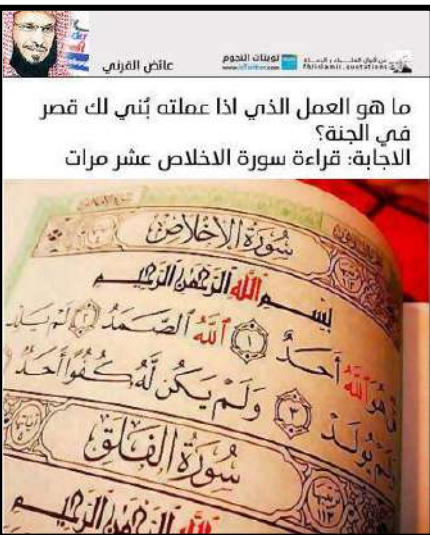 عائض القرني
تويتات النجوم
ما هو العمل الذي اذا عملته بُني لك قصر
في الجنة؟
الاجابة: قراءة سورة الاخلاص عشر مرات
سُورَةُ الإِخْلَاصِ
بِسْمِ اللَّهِ الرَّحْمَٰنِ الرَّحِيمِ
هُوَ اللَّهُ أَحَدٌ ١ اللَّهُ الصَّمَدُ ٢ لَمْ يَلِدْ
يُولَدْ ٣ وَلَمْ يَكُن لَّهُ كُفُوًا أَحَدٌ
سُورَةُ الْفَلَقِ
اللَّهِ الرَّحْمَٰنِ الرَّحِيمِ